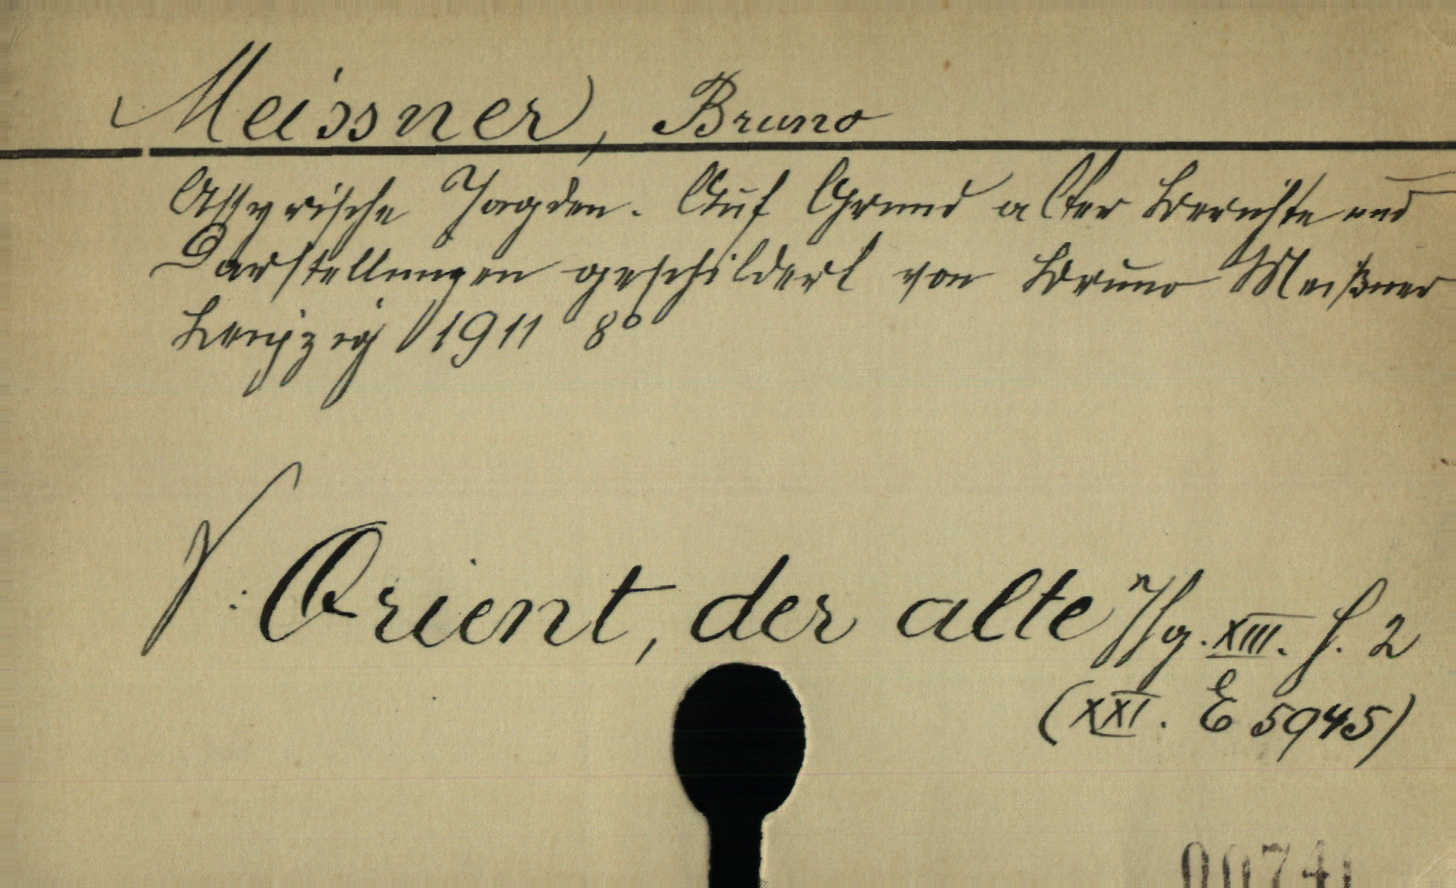 Meissner, Bruno
Assyrische Jagden. Auf Grund alter Berichte und
Darstellungen geschildert von Bruno Meißner
Leipzig 1911 8°
V: Orient, der alte Jhg. XIII. H. 2
(XXI. E 5945)